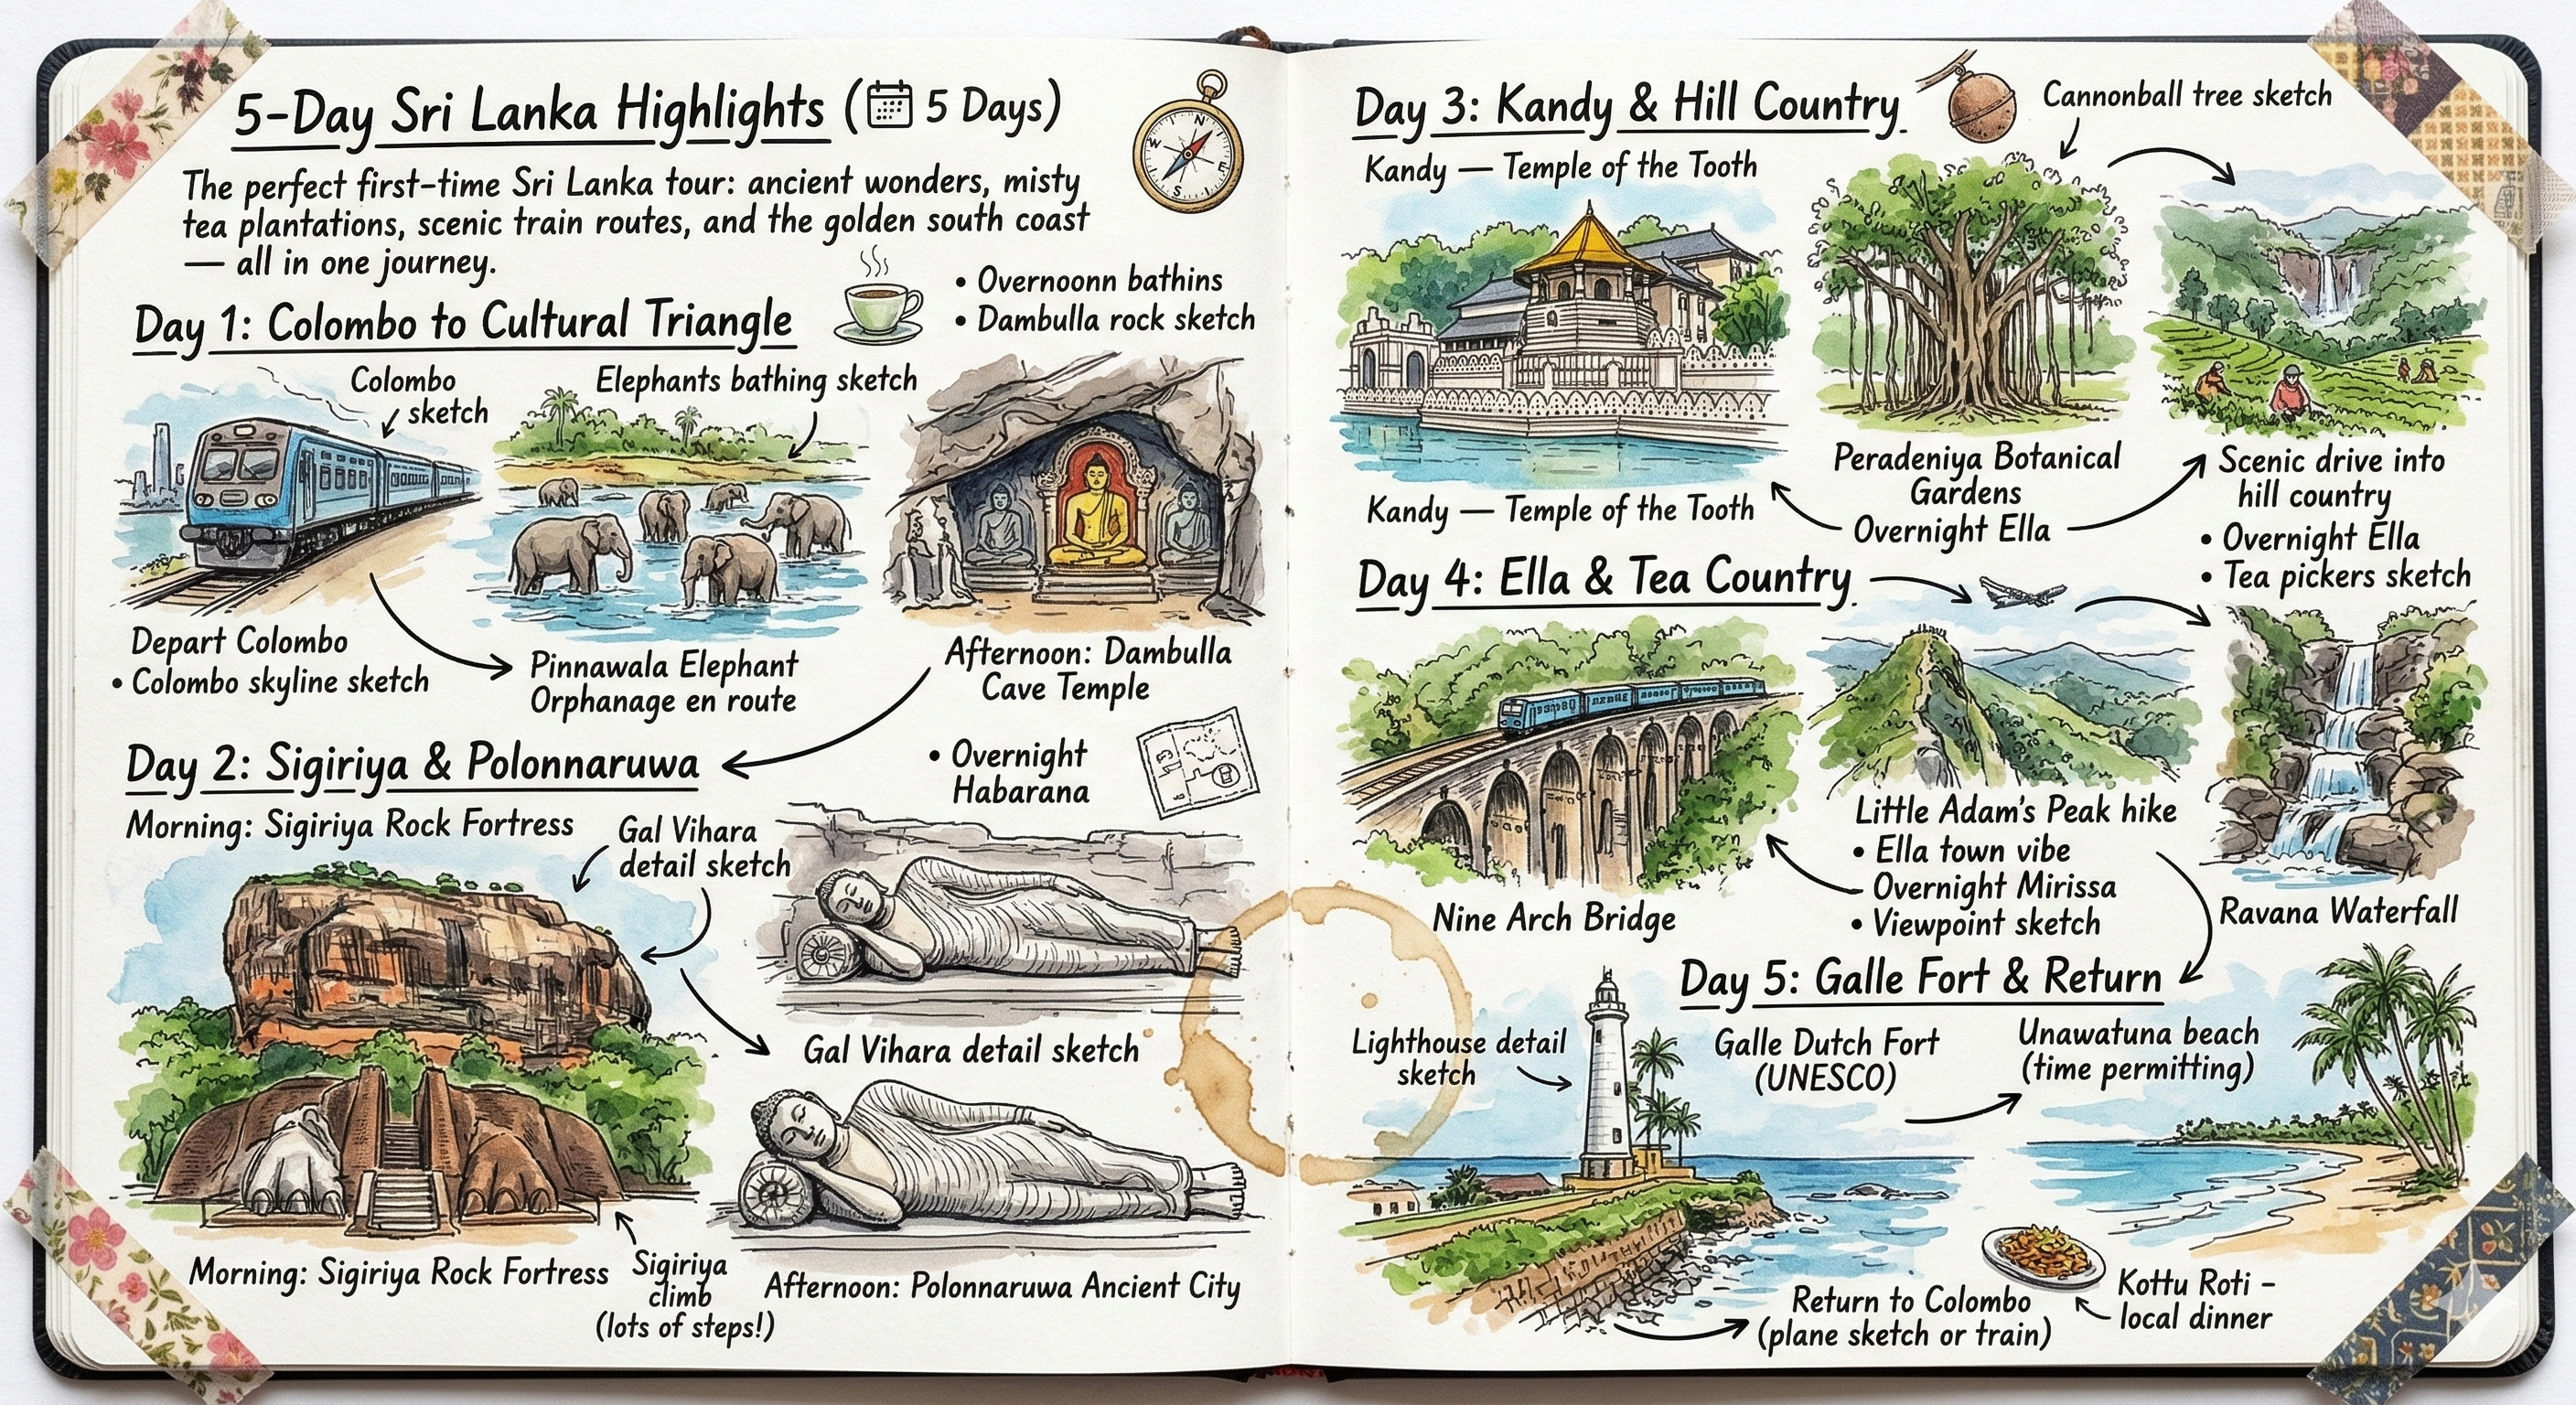 5-Day Sri Lanka Highlights (5 Days)
The perfect first-time Sri Lanka tour: ancient wonders, misty
tea plantations, scenic train routes, and the golden south coast
— all in one journey.
• Overnoonn bathins
• Dambulla rock sketch
Day 1: Colombo to Cultural Triangle
Colombo
sketch
Elephants bathing sketch
Depart Colombo
• Colombo skyline sketch
Pinnawala Elephant
Orphanage en route
Afternoon: Dambulla
Cave Temple
• Overnight
Habarana
Day 2: Sigiriya & Polonnaruwa
Morning: Sigiriya Rock Fortress
Gal Vihara
detail sketch
Gal Vihara detail sketch
Morning: Sigiriya Rock Fortress
Sigiriya
climb
(lots of steps!)
Afternoon: Polonnaruwa Ancient City
N
E
S
W
Day 3: Kandy & Hill Country
Cannonball tree sketch
Kandy — Temple of the Tooth
Kandy — Temple of the Tooth
Peradeniya Botanical
Gardens
Overnight Ella
Scenic drive into
hill country
• Overnight Ella
• Tea pickers sketch
Day 4: Ella & Tea Country
Nine Arch Bridge
Little Adam's Peak hike
• Ella town vibe
Overnight Mirissa
• Viewpoint sketch
Ravana Waterfall
Day 5: Galle Fort & Return
Lighthouse detail
sketch
Galle Dutch Fort
(UNESCO)
Unawatuna beach
(time permitting)
Return to Colombo
(plane sketch or train)
Kottu Roti –
local dinner